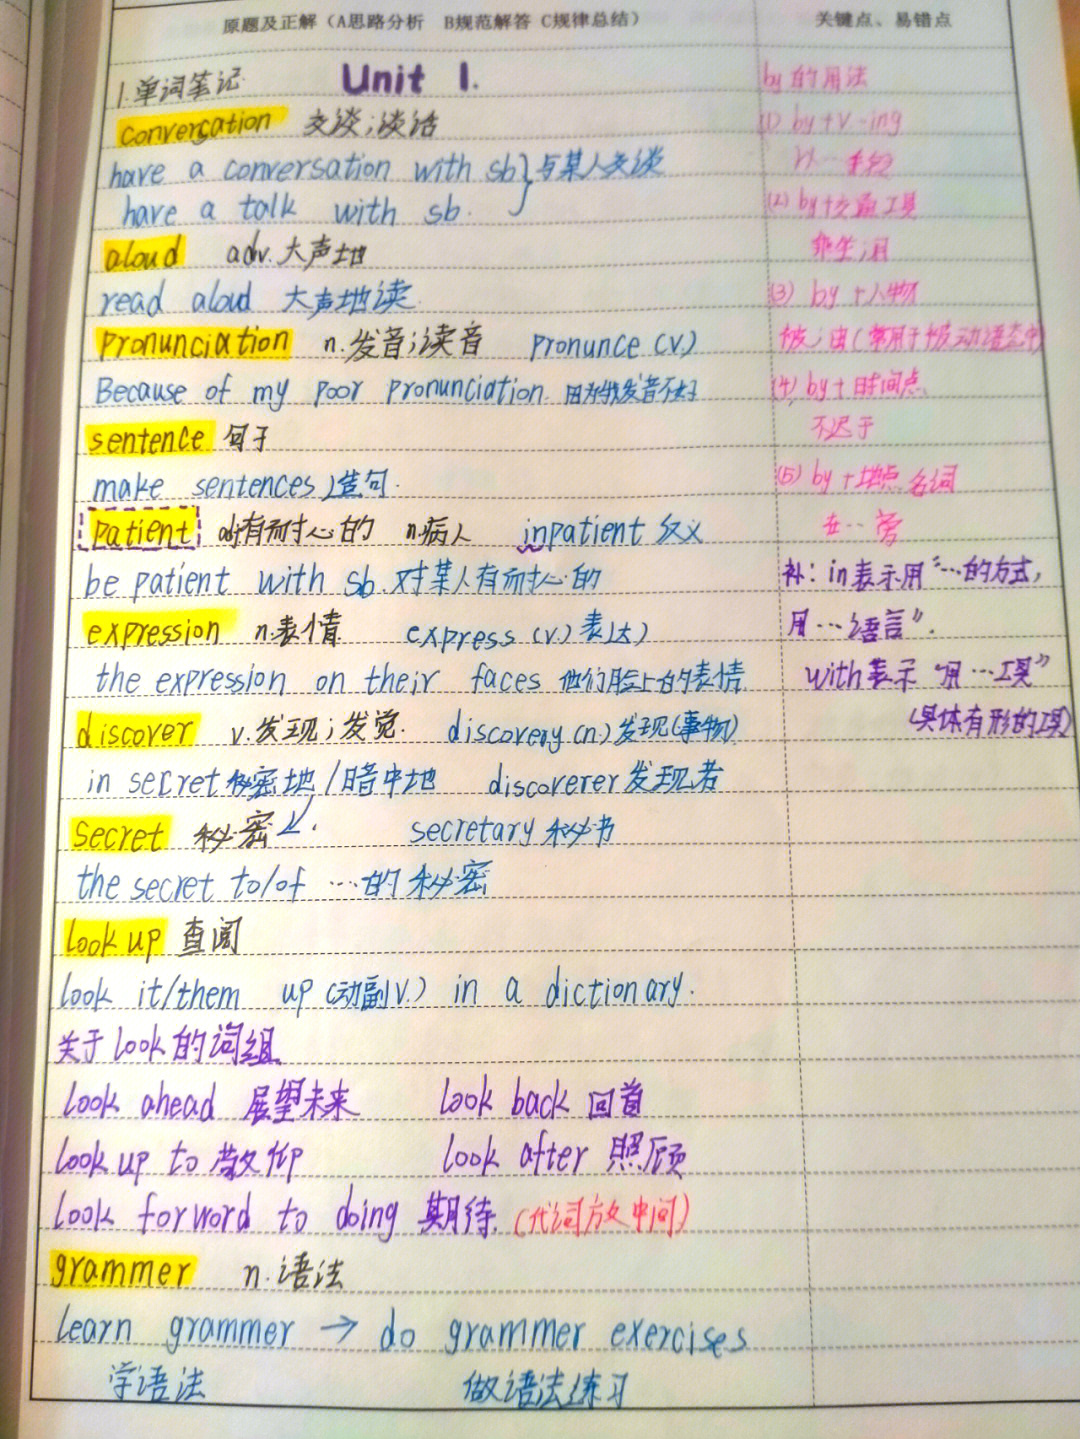 原题及正解（A思路分析 B规范解答 C规律总结）
1.单词笔记 Unit 1.
convercation 交谈;谈话
have a conversation with sb } 与某人交谈
have a talk with sb.
aloud adv.大声地
read aloud 大声地读
pronunciation n.发音;读音 pronunce (v.)
Because of my poor pronunciation. 因为我发音不好
sentence 句子
make sentences 造句.
patient adj有耐心的 n.病人 inpatient 反义
be patient with sb.对某人有耐心的
expression n.表情 express (v.) 表达)
the expression on their faces 他们脸上的表情
discover v.发现;发觉. discovery (n.)发现(事物)
in secret 秘密地/暗中地 discoverer 发现者
secret 秘密 secretary 秘书
the secret to/of …的秘密
look up 查阅
look it/them up (动副V.) in a dictionary.
关于look的词组
look ahead 展望未来 look back 回首
look up to 敬仰 look after 照顾
look forword to doing 期待. (代词放中间)
grammer n.语法
learn grammer → do grammer exercises
学语法 做语法练习
关键点、易错点
by的用法
(1) by+v-ing
以…手段
(2) by+交通工具
乘坐;用
(3) by +人物
被;由(常用于被动语态中)
(4) by+时间点
不迟于
(5) by +地点名词
在…旁
补: in表示用“…的方式,
用…语言”.
with表示“用…工具”
(具体有形的工具)